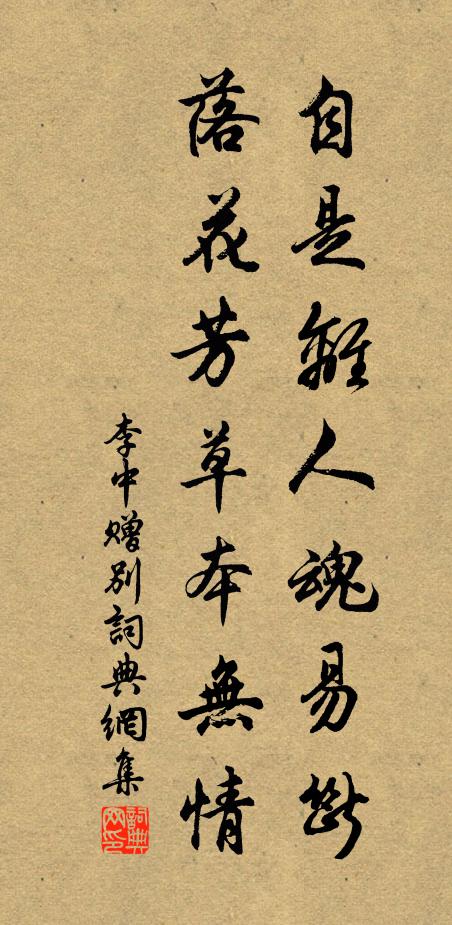 自是離人魂易斷
落花芳草本無情
李中贈別詞典網集
詞典网印